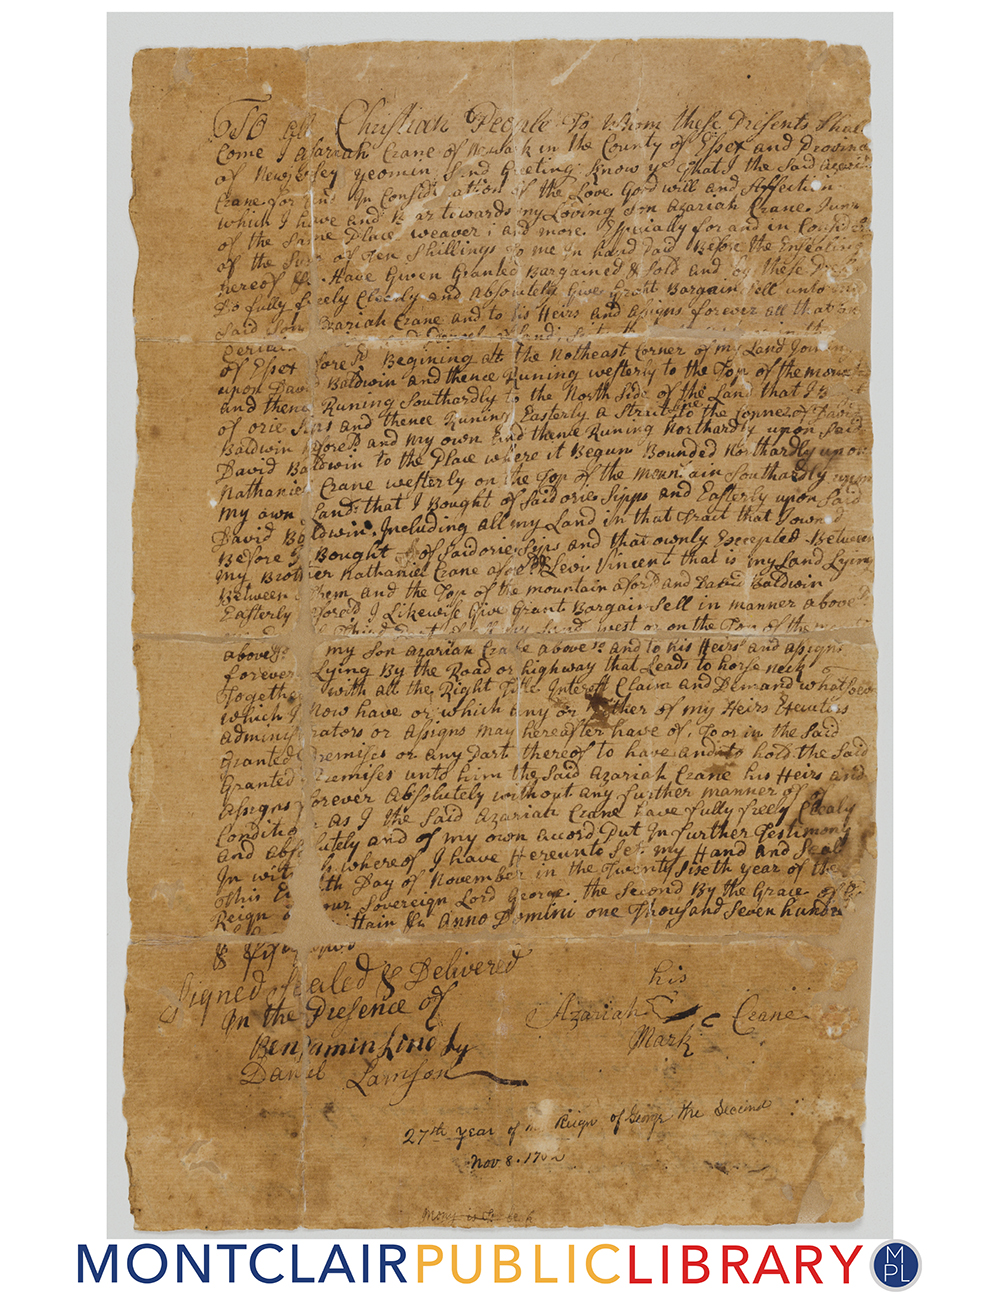 To all Christian People To Whom these Presents Shall
Come I Azariah Crane of Newark in the County of Essex and Province
of New Jersey yeomin Send Greeting Know ye That I the Said Azariah
Crane for and In Consideration of the Love Good will and Affection
which I have and Bear towards my Loving Son Azariah Crane Junr
of the Same Place weaver and more Especially for and in Consid
of the Sum of Ten Shillings to me In hand Paid Before the Ensealing
hereof Have Given Granted Bargained & Sold and by these Pres
Do fully freely Clearly and Absolutely Give Grant Bargain Sell unto my
Said Son Azariah Crane and to his Heirs and Assigns forever all that
Certain
of Essex afore sd Begining att the Notheast Corner of my Land Joining
upon David Baldwin and thence Runing westerly to the Top of the mount
and thence Runing Southardly to the North Side of the Land that I B
of orie Sips and thence Runing Easterly a Strait line to the Conner of David
Baldwin aforesd and my own and thence Runing Northardly upon Said
David Baldwin to the Place where it Begun Bounded Northardly upon
Nathaniel Crane westerly on the Top of the mountain Southardly upon
my own Land that I Bought of Said orie Sipps and Easterly upon Said
David Baldwin Including all my Land in that Tract that I owned
Before I Bought of Said orie Sips and that ownly Excepted Between
my Brother Nathaniel Crane afore sd Levi Vincent that is my Land Lying
Between them and the Top of the mountain aforsd and David Baldwin
Easterly aforesd I Likewise Give Grant Bargain Sell in manner above sd
Third Part of all my Land west or on the Top of the
abovesd my Son Azariah Crane above sd and to his Heirs and Assigns
forever Lying By the Road or highway that Leads to horse neck
Together with all the Right Title Interest Claim and Demand whatsoever
which I Now have or which any or Either of my Heirs Executors
Administrators or Assigns may hereafter have of, To or in the Said
Granted Premises or any Part thereof to have and to hold the Said
Granted Premises unto him the Said Azariah Crane his Heirs and
Assigns forever Absolutely without any further manner of
Conditio as I the Said Azariah Crane have fully freely Clearly
and absolutely and of my own accord Put In further Testimony
In witness whereof I have Hereunto Set my Hand and Seal
This Day of November in the Twenty Sixth year of the
Reign of our Sovereign Lord George the Second By the Grace of
Anno Domini one Thousand Seven hundred
& fifty
Signed Sealed & Delivered
In the Presence of
Benjamin Lindsly
Daniel Lamson
his
Azariah Crane
Mark
27th year of the Reign of George the Second
Nov 8. 1752
MONTCLAIRPUBLICLIBRARY
MPL